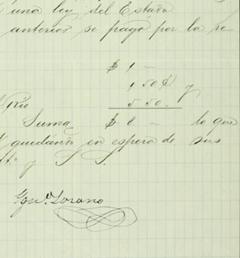 una ley del Estado
anterior se pago por la re
$ 1 —
1 50 y
5 50
Rio
Suma $ 8 — lo que
quedando en espera de sus
y
Lozano